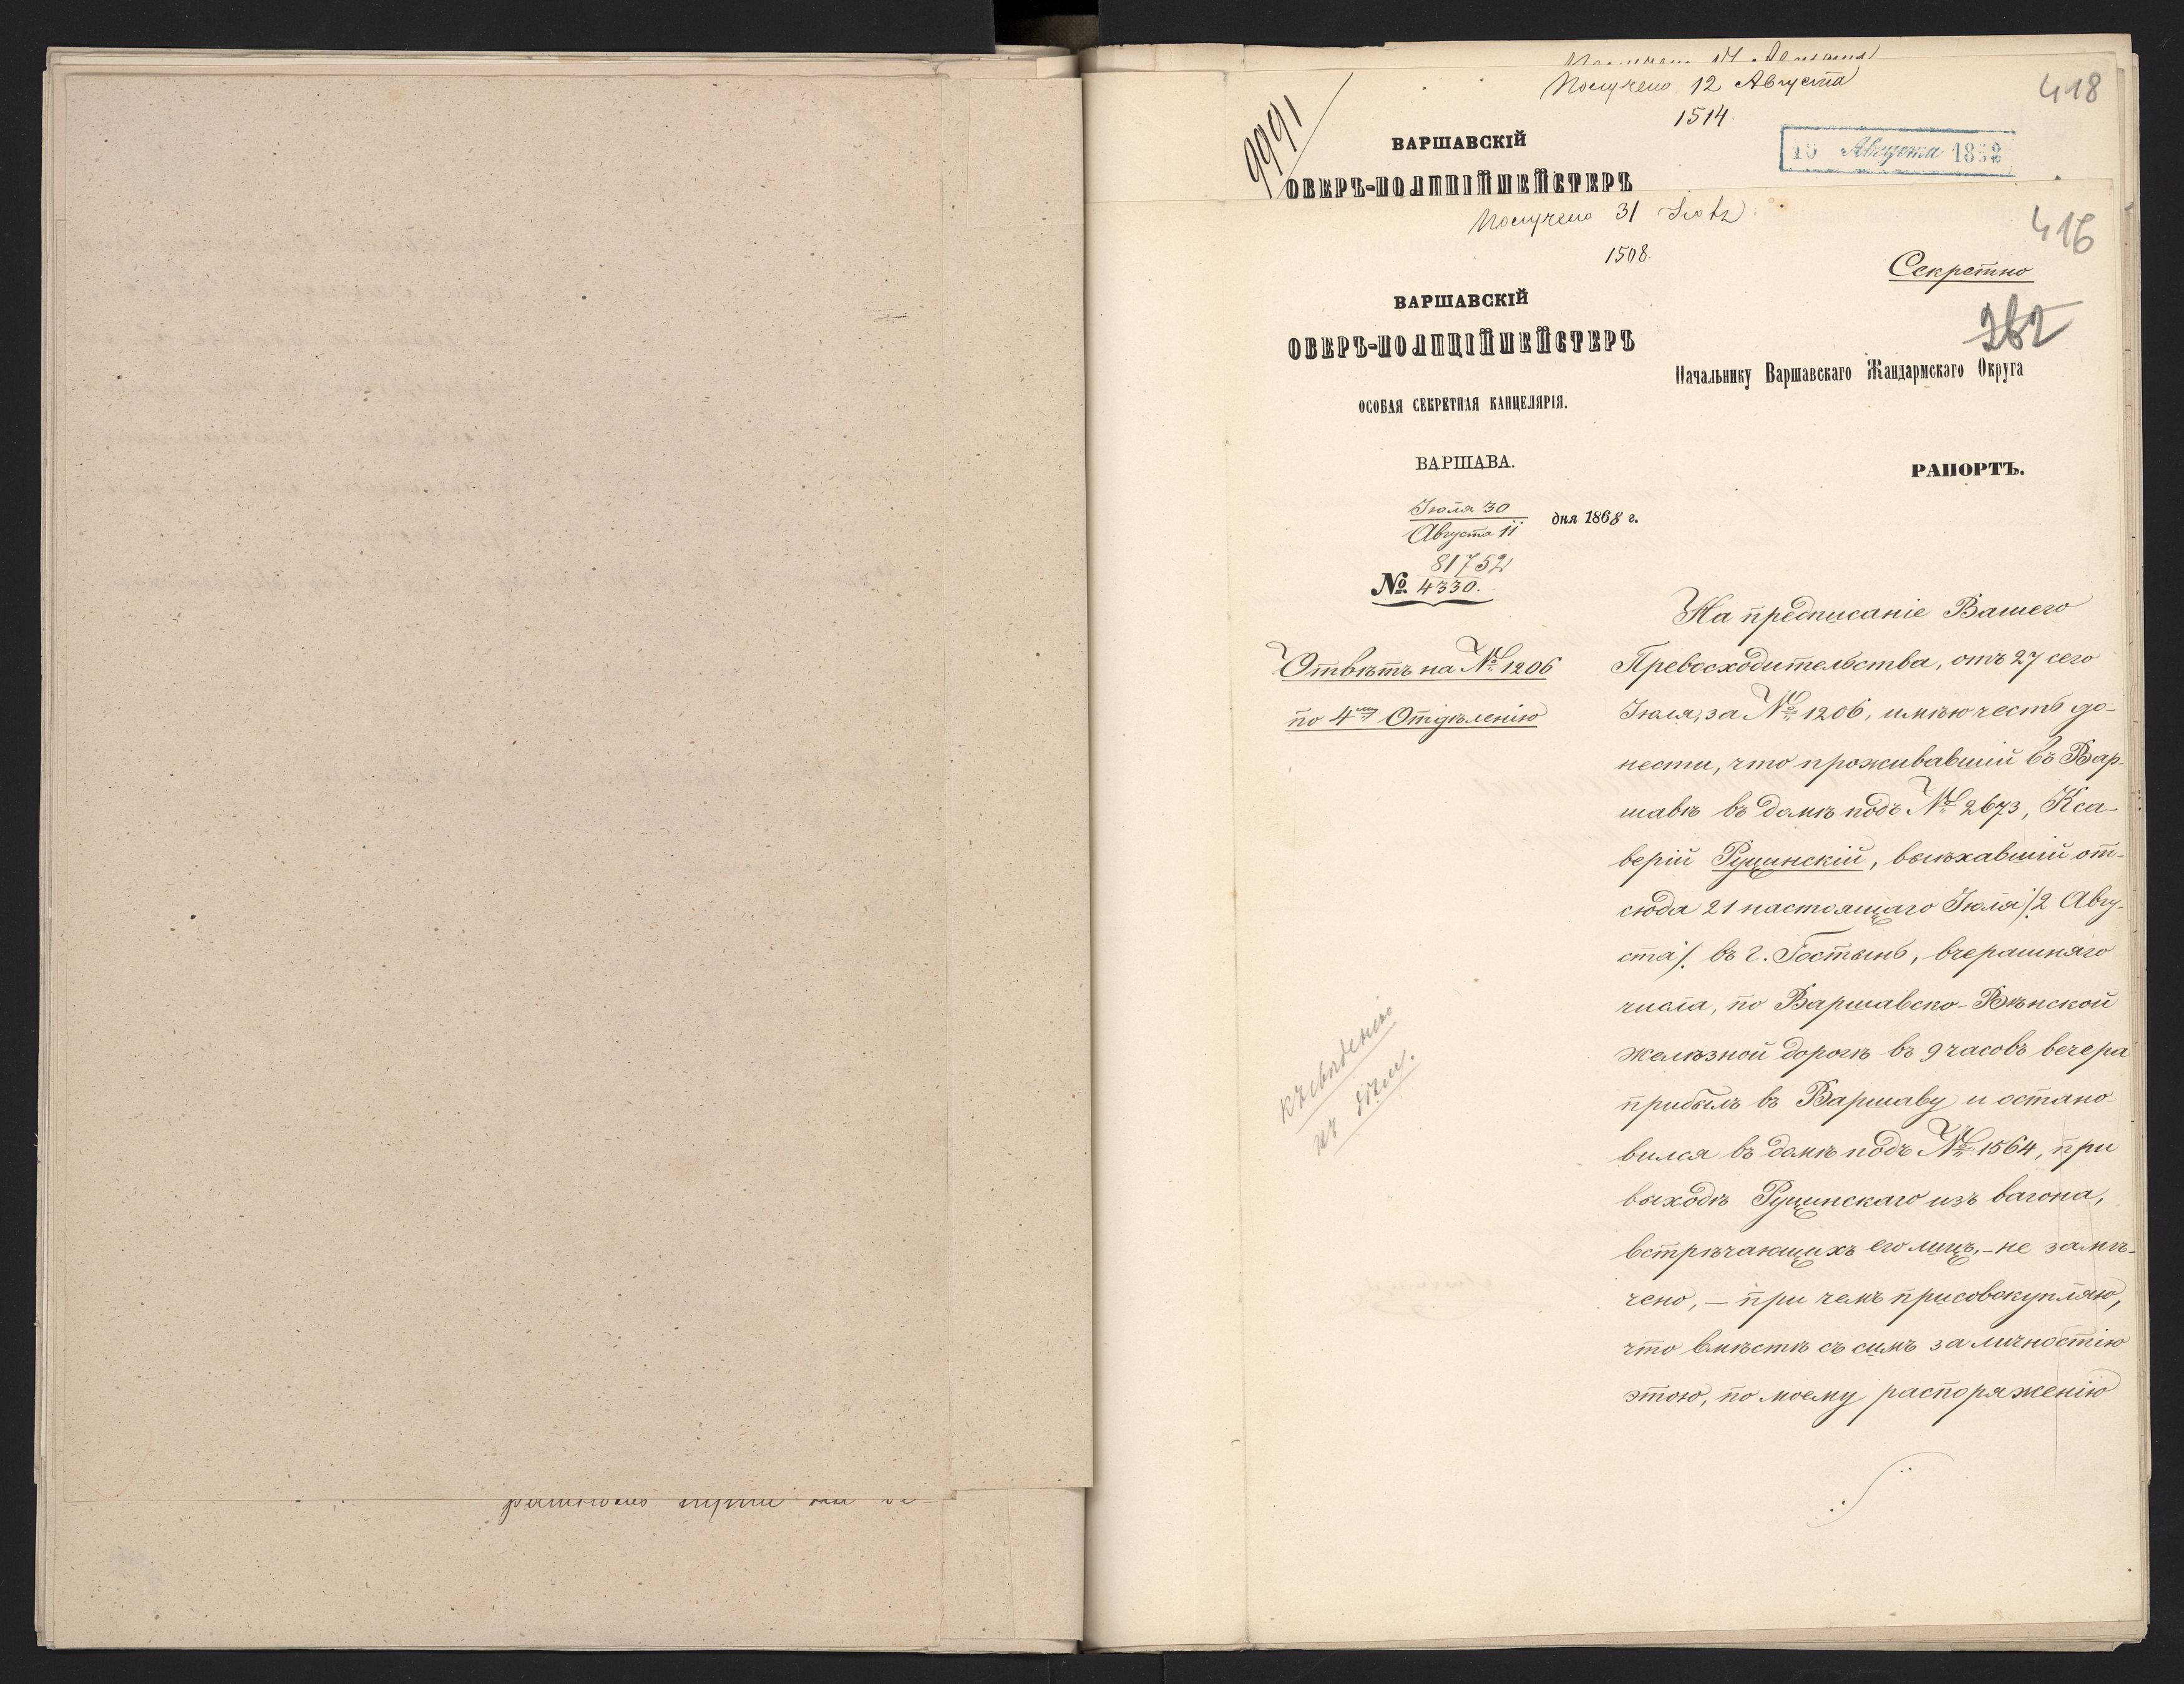 Получено 12 Августа
418
1514.
9991
ВАРШАВСКІЙ
ОБЕРЪ-ПОЛИЦІЙМЕЙСТЕРЪ
Августа
Получено 31
416
1508.
Секретно
262
ВАРШАВСКІЙ
ОБЕРЪ-ПОЛИЦІЙМЕЙСТЕРЪ
Начальнику Варшавскаго Жандармскаго Округа
ОСОБАЯ СЕКРЕТНАЯ КАНЦЕЛЯРІЯ.
ВАРШАВА.
РАПОРТЪ.
Іюля 30
Августа 11
дня 1868 г.
81752
№ 4330.
Отвѣтъ на № 1206
по 4му Отдѣленію
На предписаніе Вашего
Превосходительства, отъ 27 сего
Іюля, за № 1206, имѣю честь до-
нести, что проживавшій въ Вар-
шавѣ въ домѣ подъ № 2673, Кса-
верій Рущинскій, выѣхавшій от-
сюда 21 настоящаго Іюля /2 Авгу-
ста/. въ г. Гостынь, вчерашняго
числа, по Варшавско-Вѣнской
желѣзной дорогѣ въ 9 часовъ вечера
прибылъ въ Варшаву и остано
вился въ домѣ подъ № 1564, при
выходѣ Рущинскаго изъ вагона,
встрѣчающихъ его лицъ, - не замѣ-
чено, — при чемъ присовокупляю,
что вмѣстѣ съ симъ за личностію
этою, по моему распоряженію
къ свѣденію
къ дѣлу.